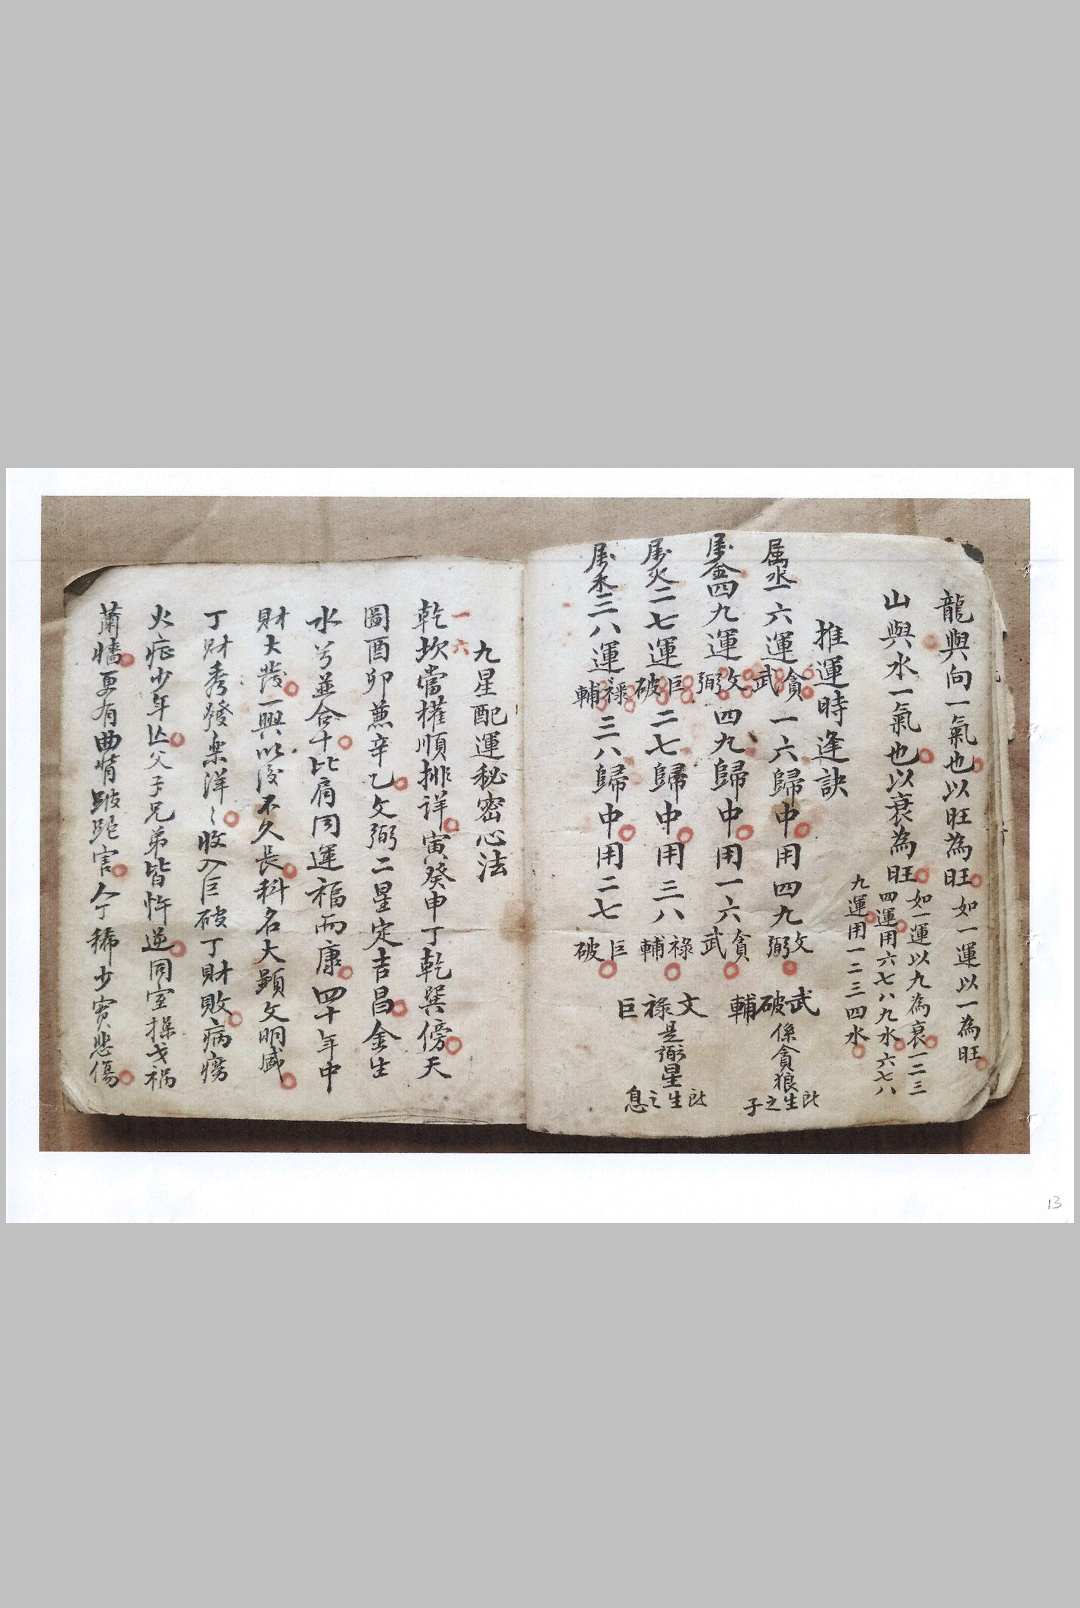 龍與向一氣也以旺為旺如一運以一為旺
山與水一氣也以衰為旺如一運以九為衰一二三
四運用六七八九水六七八
九運用一二三四水
推運時逢訣
属水一六運貪武一六歸中用四九文弼
属金四九運文弼四九歸中用一六貪武
属火二七運巨破二七歸中用三八祿輔
属木三八運祿輔三八歸中用二七巨破
武破輔係貪狼所生之子
文祿巨是弼星所生之息
九星配運秘密心法
一六
乾坎當權順排详寅癸申丁乾巽傍天
圖酉卯兼辛乙文弼二星定吉昌金生
水兮並合十比肩同運福而康四十年中
財大發一興以後不久長科名大顯文明盛
丁財秀發樂洋ミ收入巨破丁財敗病癆
火症少年亡父子兄弟皆忤逆同室操戈祸
蕭墻更有曲情跛跎害人丁稀少實悲傷
13